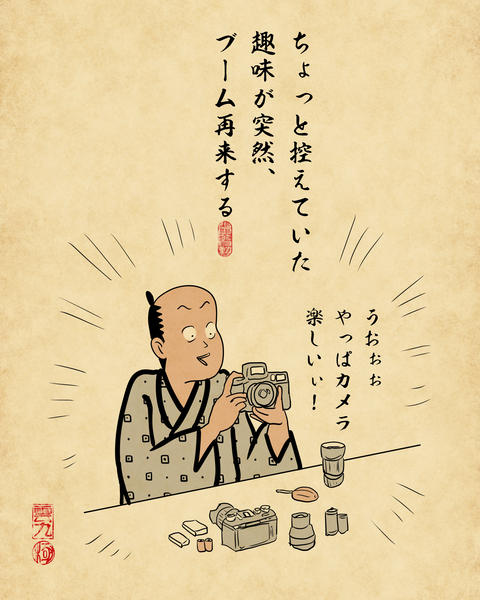 ちょっと控えていた
趣味が突然、
ブーム再来する
うおぉぉ
やっぱカメラ
楽しいぃ！